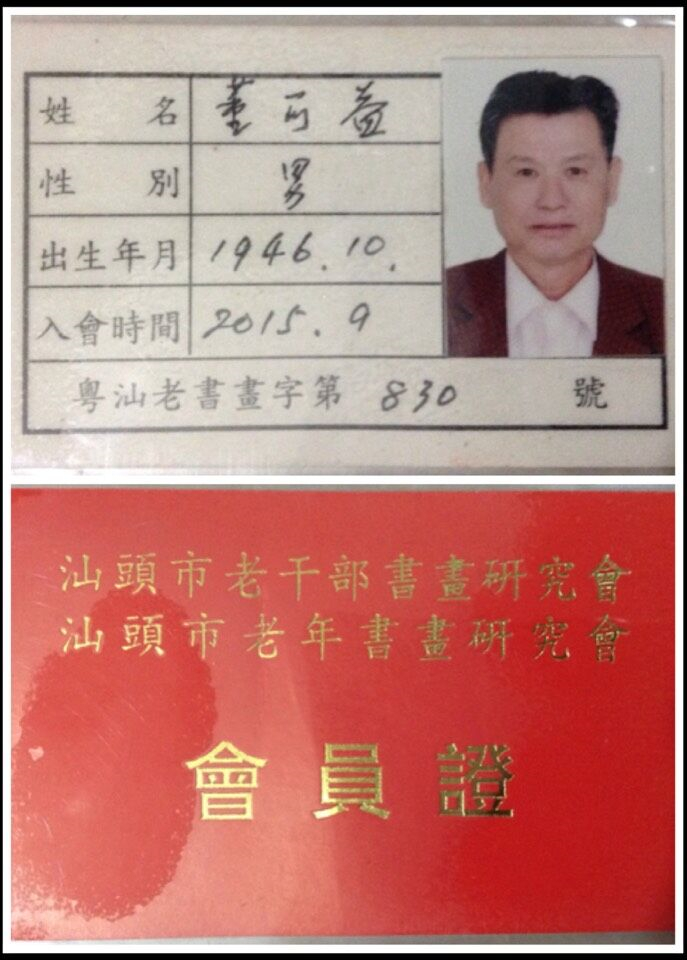 姓名 董可益
性別 男
出生年月 1946.10.
入會時間 2015.9
粵汕老書畫字第 830 號
汕頭市老干部書畫研究會
汕頭市老年書畫研究會
會員證